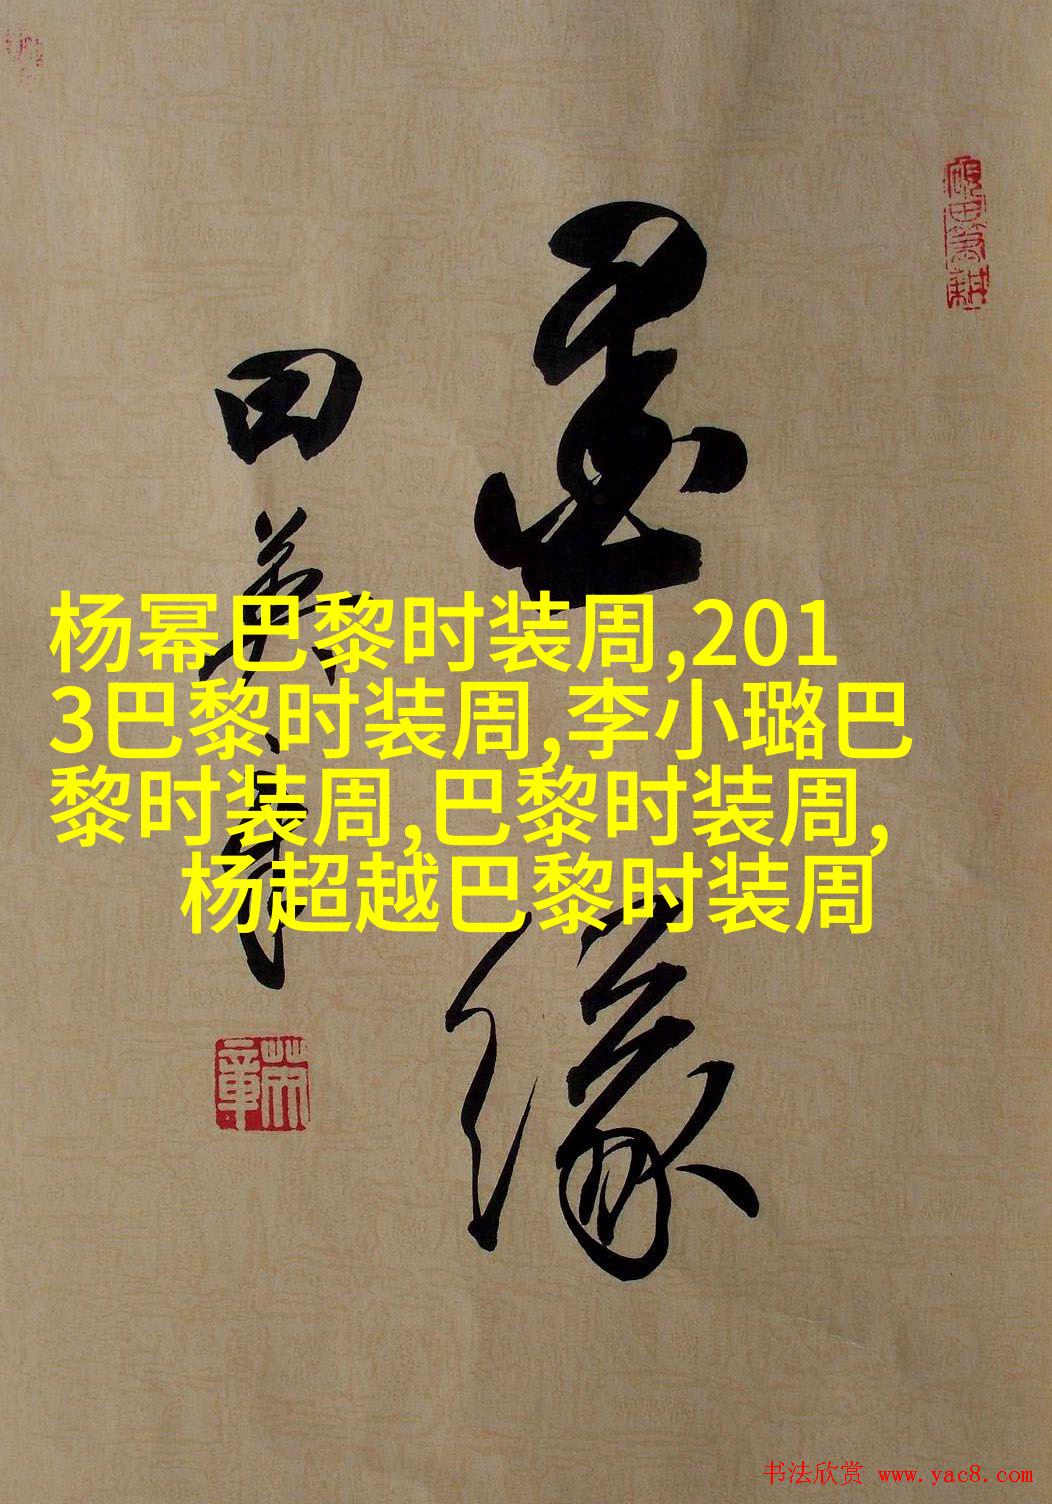 墨缘
田英章
杨幂巴黎时装周,201
3巴黎时装周,李小璐巴
黎时装周,巴黎时装周,
杨超越巴黎时装周
英章
书法欣赏 www.yac8.com